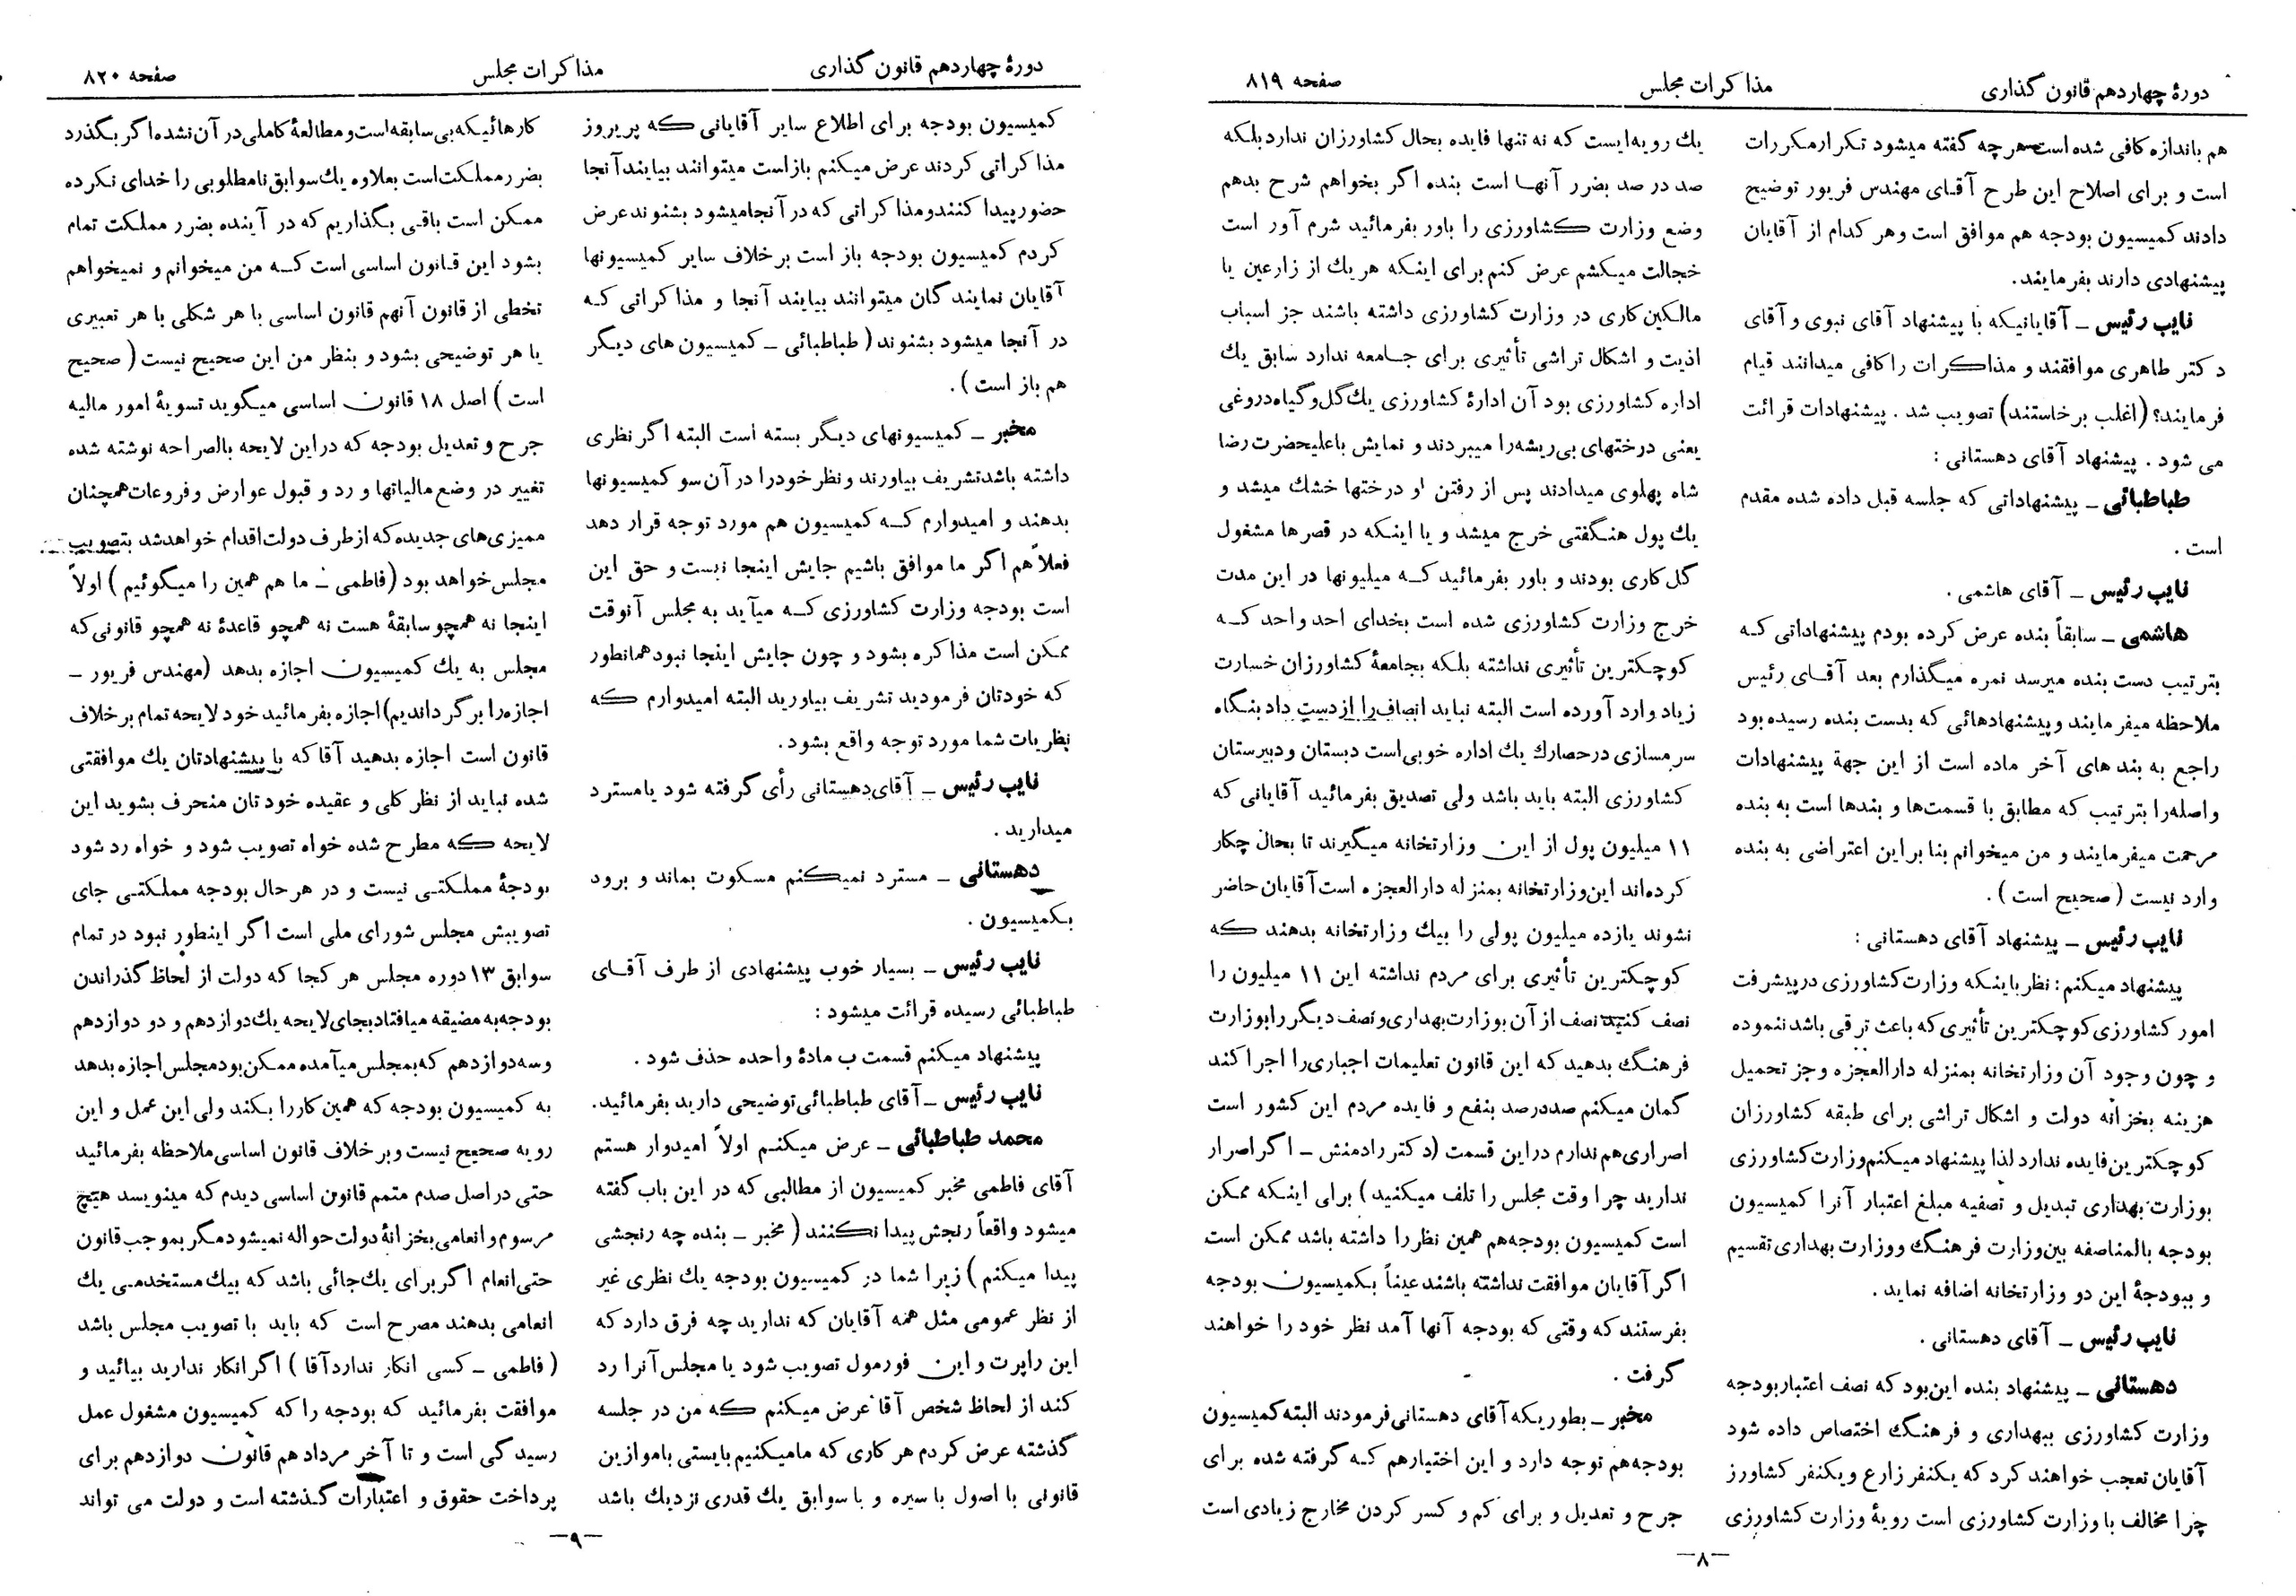 دورهٔ چهاردهم قانون گذاری
مذاکرات مجلس
صفحه ۸۱۹
هم باندازه کافی شده است هرچه گفته میشود تکرارمکررات
است و برای اصلاح این طرح آقای مهندس فریور توضیح
دادند کمیسیون بودجه هم موافق است وهر کدام از آقایان
پیشنهادی دارند بفرمایند.
نایب رئیس ـ آقایانیکه با پیشنهاد آقای نبوی و آقای
دکتر طاهری موافقند و مذاکرات راکافی میدانند قیام
فرمایند؟ (اغلب برخاستند) تصویب شد . پیشنهادات قرائت
می شود . پیشنهاد آقای دهستانی :
طباطبائی ـ پیشنهاداتی که جلسه قبل داده شده مقدم
است .
نایب رئیس ـ آقای هاشمی .
هاشمی ـ سابقاً بنده عرض کرده بودم پیشنهاداتی که
بترتیب دست بنده میرسد نمره میگذارم بعد آقای رئیس
ملاحظه میفرمایند وپیشنهادهائی که بدست بنده رسیده بود
راجع به بند های آخر ماده است از این جهة پیشنهادات
واصله‌را بترتیب که مطابق با قسمت‌ها و بندها است به بنده
مرحمت میفرمایند و من میخوانم بنا براین اعتراضی به بنده
وارد نیست (صحیح است) .
نایب رئیس ـ پیشنهاد آقای دهستانی :
پیشنهاد میکنم : نظرباینکه وزارت کشاورزی درپیشرفت
امور کشاورزی کوچکترین تأثیری که باعث ترقی باشد ننموده
و چون وجود آن وزارتخانه بمنزله دارالعجزه وجز تحمیل
هزینه بخزانه دولت و اشکال تراشی برای طبقه کشاورزان
کوچکترین‌فایده ندارد لذا پیشنهاد میکنم وزارت کشاورزی
بوزارت بهداری تبدیل و تصفیه مبلغ اعتبار آنرا کمیسیون
بودجه بالمناصفه بین وزارت فرهنگ ووزارت بهداری تقسیم
و ببودجهٔ این دو وزارتخانه اضافه نماید .
نایب رئیس ـ آقای دهستانی .
دهستانی ـ پیشنهاد بنده این‌بود که نصف اعتبار بودجه
وزارت کشاورزی ببهداری و فرهنگ اختصاص داده شود
آقایان تعجب خواهند کرد که یکنفر زارع ویکنفر کشاورز
چرا مخالف با وزارت کشاورزی است رویهٔ وزارت کشاورزی
یك رویه‌ایست که نه تنها فایده بحال کشاورزان ندارد بلکه
صد در صد بضرر آنها است بنده اگر بخواهم شرح بدهم
وضع وزارت کشاورزی را باور بفرمائید شرم آور است
خجالت میکشم عرض کنم برای اینکه هریك از زارعین یا
مالکین کاری در وزارت کشاورزی داشته باشند جز اسباب
اذیت و اشکال تراشی تأثیری برای جامعه ندارد سابق یك
اداره کشاورزی بود آن ادارهٔ کشاورزی یك گل وگیاه دروغی
یعنی درختهای بی‌ریشه‌را میبردند و نمایش باعلیحضرت رضا
شاه پهلوی میدادند پس از رفتن او درختها خشك میشد و
یك پول هنگفتی خرج میشد و یا اینکه در قصرها مشغول
گل کاری بودند و باور بفرمائید که میلیونها در این مدت
خرج وزارت کشاورزی شده است بخدای احد واحد که
کوچکترین تأثیری نداشته بلکه بجامعهٔ کشاورزان خسارت
زیاد وارد آورده است البته نباید انصاف را ازدست داد بنگاه
سرمسازی درحصارك یك اداره خوبی‌است دبستان ودبیرستان
کشاورزی البته باید باشد ولی تصدیق بفرمائید آقایانی که
۱۱ میلیون پول از این وزارتخانه میگیرند تا بحال چکار
کرده‌اند این‌وزارتخانه بمنزله دارالعجزه است آقایان حاضر
نشوند یازده میلیون پولی را بیك وزارتخانه بدهند که
کوچکترین تأثیری برای مردم نداشته این ۱۱ میلیون را
نصف کنید نصف از آن بوزارت بهداری ونصف دیگر را بوزارت
فرهنگ بدهید که این قانون تعلیمات اجباری را اجرا کند
گمان میکنم صددرصد بنفع و فایده مردم این کشور است
اصراری‌هم ندارم دراین قسمت (دکتر رادمنش ـ اگر اصرار
ندارید چرا وقت مجلس را تلف میکنید) برای اینکه ممکن
است کمیسیون بودجه‌هم همین نظر را داشته باشد ممکن است
اگر آقایان موافقت نداشته باشند عیناً بکمیسیون بودجه
بفرستند که وقتی که بودجه آنها آمد نظر خود را خواهند
گرفت .
مخبر ـ بطوریکه آقای دهستانی فرمودند البته کمیسیون
بودجه‌هم توجه دارد و این اختیارهم که گرفته شده برای
جرح و تعدیل و برای کم و کسر کردن مخارج زیادی است
ـ۸ـ
دورهٔ چهاردهم قانون گذاری
مذاکرات مجلس
صفحه ۸۲۰
کمیسیون بودجه برای اطلاع سایر آقایانی که پریروز
مذاکراتی کردند عرض میکنم بازاست میتوانند بیایند آنجا
حضور پیدا کنند ومذاکراتی که در آنجا میشود بشنوند عرض
کردم کمیسیون بودجه باز است برخلاف سایر کمیسیونها
آقایان نمایندگان میتوانند بیایند آنجا و مذاکراتی که
در آنجا میشود بشنوند (طباطبائی ـ کمیسیون های دیگر
هم باز است) .
مخبر ـ کمیسیونهای دیگر بسته است البته اگر نظری
داشته باشد تشریف بیاورند ونظر خودرا در آن سو کمیسیونها
بدهند و امیدوارم که کمیسیون هم مورد توجه قرار دهد
فعلاً هم اگر ما موافق باشیم جایش اینجا نیست و حق این
است بودجه وزارت کشاورزی که میآید به مجلس آنوقت
ممکن است مذاکره بشود و چون جایش اینجا نبود همانطور
که خودتان فرمودید تشریف بیاورید البته امیدوارم که
نظریات شما مورد توجه واقع بشود.
نایب رئیس ـ آقای دهستانی رأی گرفته شود یا مسترد
میدارید .
دهستانی ـ مسترد نمیکنم مسکوت بماند و برود
بکمیسیون .
نایب رئیس ـ بسیار خوب پیشنهادی از طرف آقای
طباطبائی رسیده قرائت میشود :
پیشنهاد میکنم قسمت ب مادهٔ واحده حذف شود .
نایب رئیس ـ آقای طباطبائی توضیحی دارید بفرمائید.
محمد طباطبائی ـ عرض میکنم اولاً امیدوار هستم
آقای فاطمی مخبر کمیسیون از مطالبی که در این باب گفته
میشود واقعاً رنجش پیدا نکنند (مخبر ـ بنده چه رنجشی
پیدا میکنم) زیرا شما در کمیسیون بودجه یك نظری غیر
از نظر عمومی مثل همه آقایان که ندارید چه فرق دارد که
این راپرت و این فورمول تصویب شود یا مجلس آنرا رد
کند از لحاظ شخص آقا عرض میکنم که من در جلسه
گذشته عرض کردم هر کاری که مامیکنیم بایستی باموازین
قانونی با اصول با سیره و با سوابق یك قدری نزدیك باشد
کارهائیکه بی‌سابقه است و مطالعهٔ کاملی در آن نشده اگر بگذرد
بضرر مملکت است بعلاوه یك سوابق نامطلوبی را خدای نکرده
ممکن است باقی بگذاریم که در آینده بضرر مملکت تمام
بشود این قانون اساسی است که من میخوانم و نمیخواهم
تخطی از قانون آنهم قانون اساسی با هر شکلی با هر تعبیری
یا هر توضیحی بشود و بنظر من این صحیح نیست (صحیح
است) اصل ۱۸ قانون اساسی میگوید تسویهٔ امور مالیه
جرح و تعدیل بودجه که دراین لایحه بالصراحه نوشته شده
تغییر در وضع مالیاتها و رد و قبول عوارض وفروعات همچنان
ممیزی‌های جدیده که ازطرف دولت اقدام خواهدشد بتصویب
مجلس خواهد بود (فاطمی ـ ما هم همین را میگوئیم) اولاً
اینجا نه همچو سابقهٔ هست نه همچو قاعدهٔ نه همچو قانونی که
مجلس به یك کمیسیون اجازه بدهد (مهندس فریور ـ
اجازه‌را برگرداندیم) اجازه بفرمائید خود لایحه تمام برخلاف
قانون است اجازه بدهید آقا که با پیشنهادتان یك موافقتی
شده نباید از نظر کلی و عقیده خودتان منحرف بشوید این
لایحه که مطرح شده خواه تصویب شود و خواه رد شود
بودجهٔ مملکتی نیست و در هرحال بودجه مملکتی جای
تصویبش مجلس شورای ملی است اگر اینطور نبود در تمام
سوابق ۱۳ دوره مجلس هر کجا که دولت از لحاظ گذراندن
بودجه به مضیقه میافتاد بجای لایحه یك دوازدهم و دو دوازدهم
وسه دوازدهم که بمجلس میآمده ممکن بود مجلس اجازه بدهد
به کمیسیون بودجه که همین کار را بکند ولی این عمل و این
رویه صحیح نیست وبرخلاف قانون اساسی ملاحظه بفرمائید
حتی در اصل صدم متمم قانون اساسی دیدم که مینویسد هیچ
مرسوم و انعامی بخزانهٔ دولت حواله نمیشود مگر بموجب قانون
حتی انعام اگر برای یك جائی باشد که بیك مستخدمی یك
انعامی بدهند مصرح است که باید با تصویب مجلس باشد
(فاطمی ـ کسی انکار ندارد آقا) اگر انکار ندارید بیائید و
موافقت بفرمائید که بودجه را که کمیسیون مشغول عمل
رسیدگی است و تا آخر مرداد هم قانون دوازدهم برای
پرداخت حقوق و اعتبارات گذشته است و دولت می تواند
ـ۹ـ